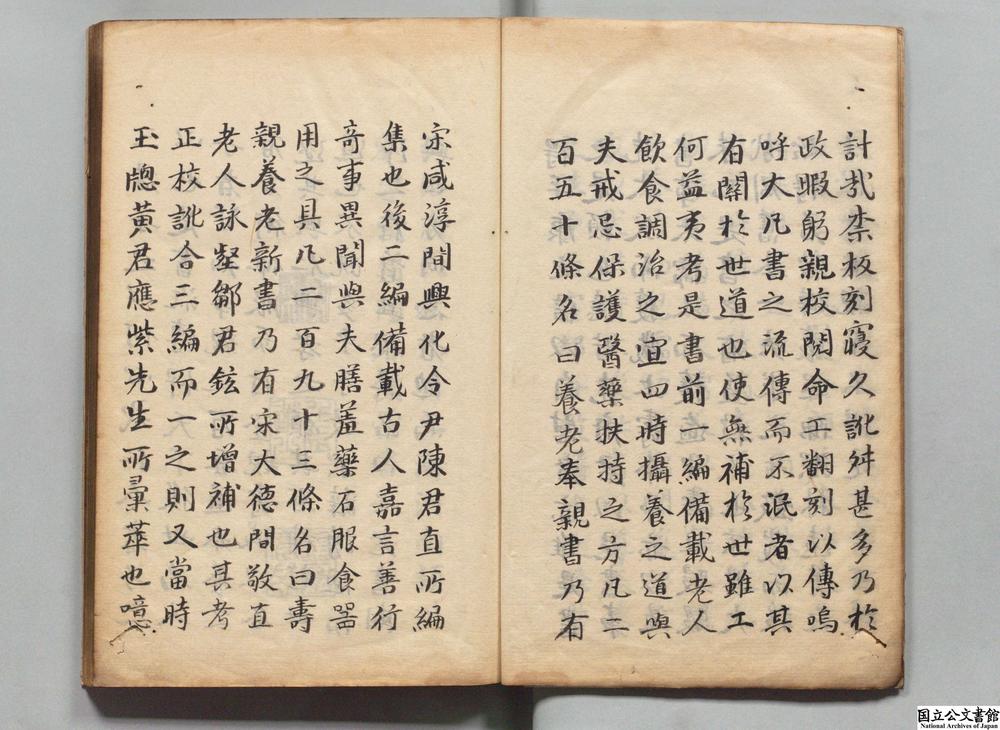 計㢤柰板刻寖久訛舛甚多乃於
政暇躬親校閱命工翻刻以傳嗚
呼大凡書之流傳而不泯者以其
有關於世道也使無補於世雖工
何益夷考是書前一編備載老人
飲食調治之宜四時攝養之道與
夫戒忌保護醫藥扶持之方凡二
百五十條名曰養老奉親書乃有
宋咸淳間興化令尹陳君直所編
集也後二編備載古人嘉言善行
奇事異聞與夫膳羞藥石服食器
用之具凡二百九十三條名曰壽
親養老新書乃有宋大德間敬直
老人詠壑鄒君鉉所增補也其考
正校訛合三編而一之則又當時
玉牕黃君應紫先生所彙萃也噫
国立公文書館
National Archives of Japan